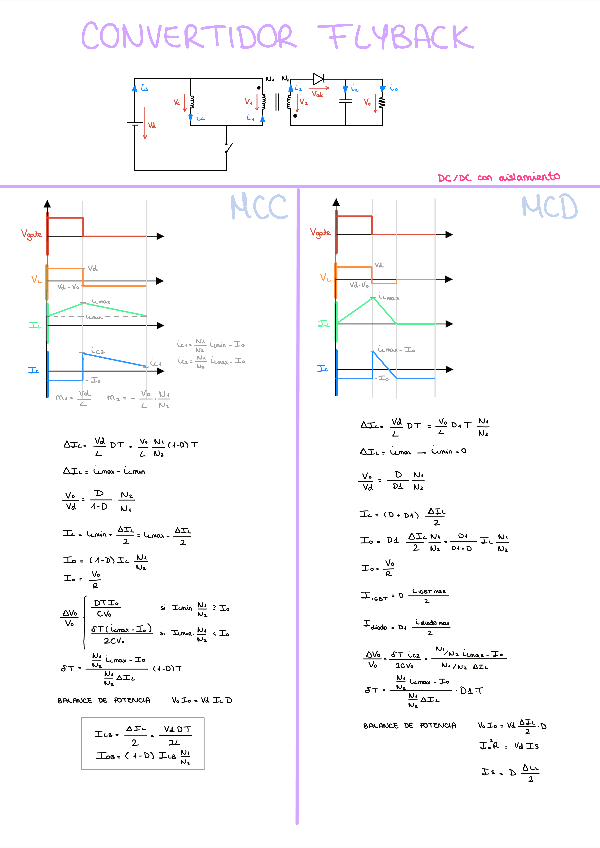 CONVERTIDOR FLYBACK
N₁ N₂
is
Vd
VL
iL
V₁
i₁
i₂
V₂
Vak
ic
Vo
io
DC/DC con aislamiento
MCC
Vgate
VL
Vd
Vd-Vo
IL
iLmax
iLmin
Ic
ic2
ic1
-Io
ic1 = N1/N2 iLmin - Io
ic2 = N1/N2 iLmax - Io
m₁ = Vd/L m₂ = - Vo/L · N1/N2
ΔIL = Vd/L DT = Vo/L N1/N2 (1-D)T
ΔIL = iLmax - iLmin
Vo/Vd = D/1-D N2/N1
IL = iLmin + ΔIL/2 = iLmax - ΔIL/2
Io = (1-D) IL N1/N2
Io = Vo/R
ΔVo/Vo
DTIo/CVo si ILmin N1/N2 > Io
δT(iLmax - Io)/2CVo si ILmin N1/N2 < Io
δT = N1/N2 iLmax - Io / N1/N2 ΔIL (1-D)T
BALANCE DE POTENCIA VoIo = Vd IL D
ILB = ΔIL/2 = VdDT/2L
IOB = (1-D) ILB N1/N2
MCD
Vgate
VL
Vd
Vd-Vo
IL
iLmax
Ic
iLmax - Io
-Io
ΔIL = Vd/L DT = Vo/L D1T N1/N2
ΔIL = iLmax → iLmin = 0
Vo/Vd = D/D1 N2/N1
IL = (D + D1) ΔIL/2
Io = D1 ΔIL/2 N1/N2 = D1/D1+D IL N1/N2
Io = Vo/R
I IGBT = D i IGBT max/2
I diodo = D1 i diodo max/2
ΔVo/Vo = δT ic2/2CVo = N1/N2 iLmax - Io / N1/N2 ΔIL
δT = N1/N2 iLmax - Io / N1/N2 ΔIL · D1T
BALANCE DE POTENCIA VoIo = Vd ΔIL/2 · D
Io²R = Vd Is
Is = D ΔIL/2